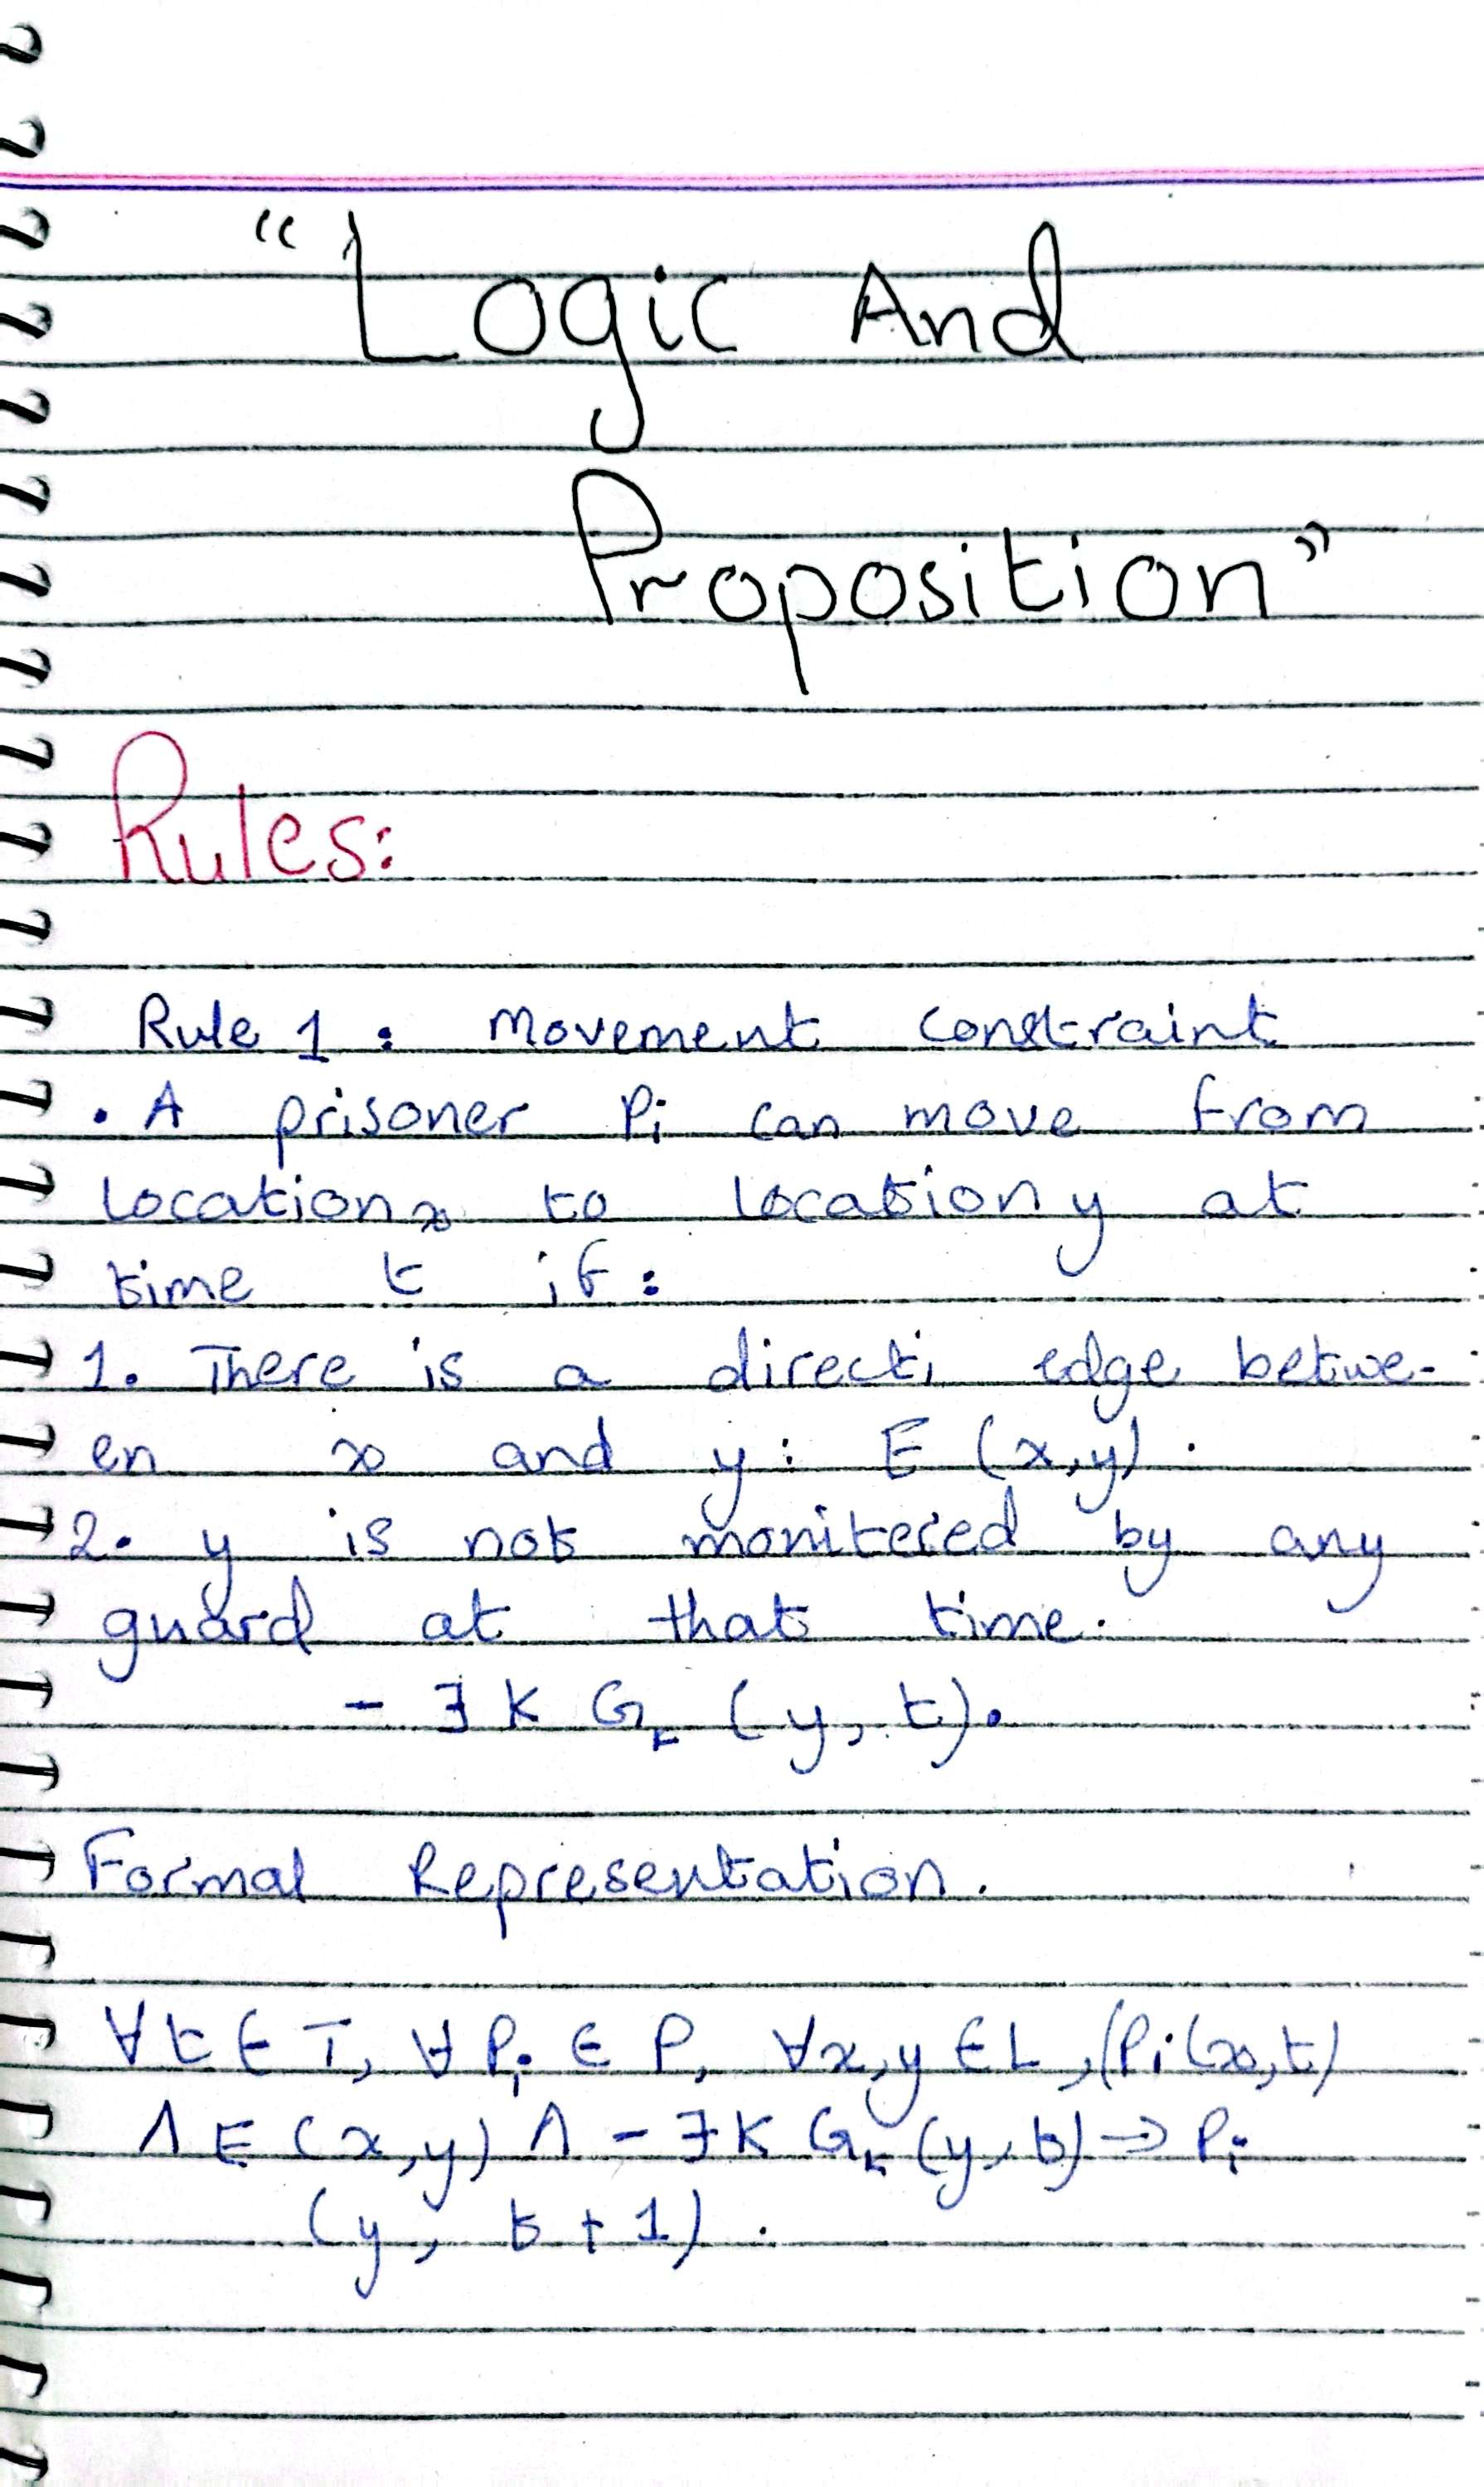 “Logic And
Proposition”
Rules:
Rule 1 : Movement constraint
. A prisoner Pi can move from
location x to location y at
time t if :
1. There is a directi edge betwe-
en x and y : E (x,y) .
2. y is not monitered by any
guard at that time.
- ∃ K Gk (y, t).
Formal Representation.
∀t ∈ T, ∀ Pi ∈ P, ∀x,y ∈ L ,(Pi(x,t)
∧ E (x,y) ∧ - ∃K Gk (y, t) → Pi
(y, t + 1) .